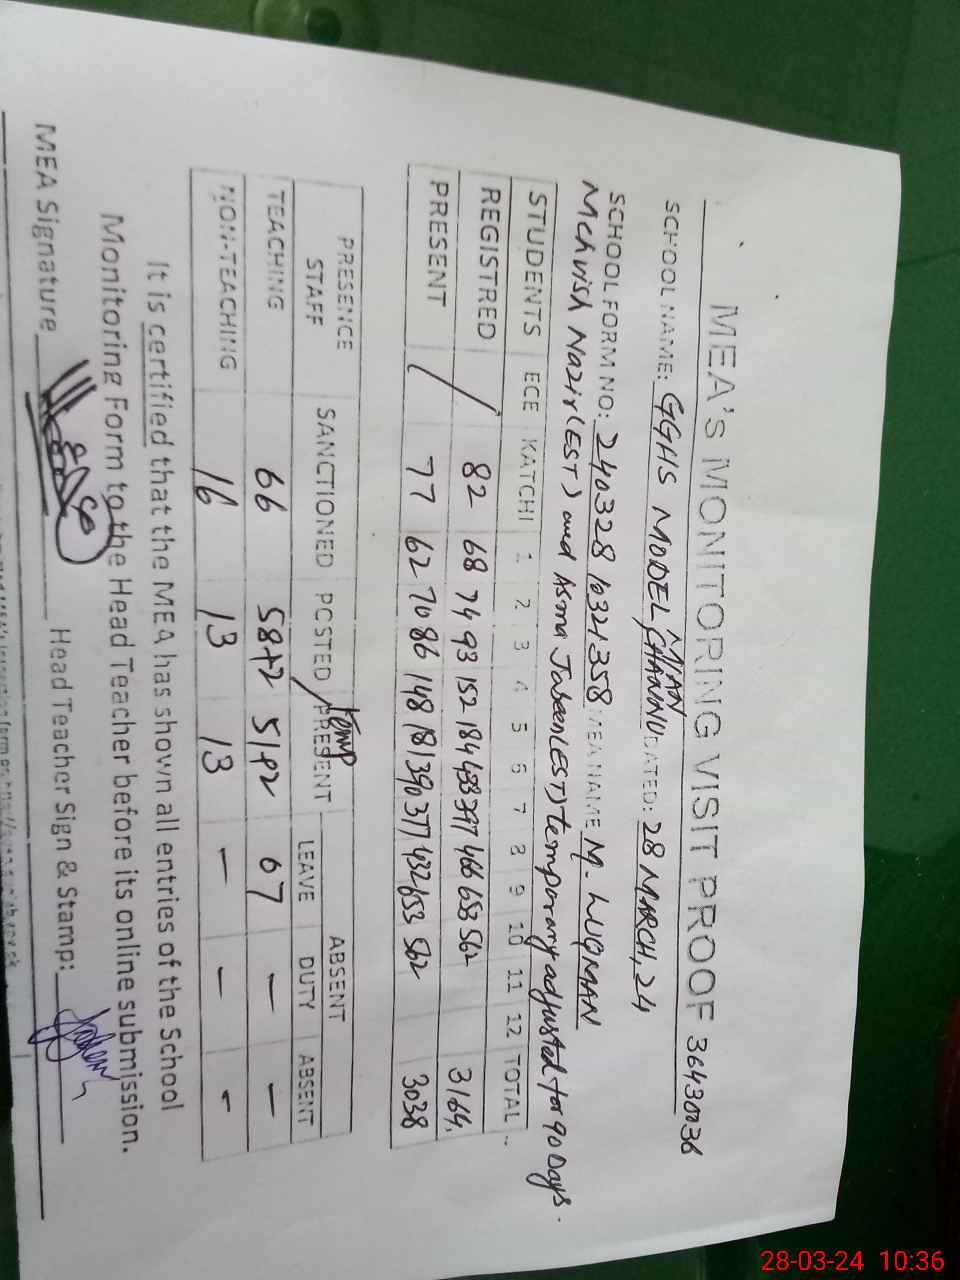 MEA'S MONITORING VISIT PROOF 36430036
SCHOOL NAME: GGHS MODEL, MIAN CHANNU DATED: 28 MARCH, 24
SCHOOL FORM NO: 240328 10321358 MEA NAME M. LUQMAN
Mehvish Nazir (EST) and Asma Jabeen (EST) temporary adjusted for 90 Days.
STUDENTS ECE KATCHI 1 2 3 4 5 6 7 8 9 10 11 12 TOTAL
REGISTRED / 82 68 74 93 152 184 433 397 466 653 562 3164
PRESENT / 77 62 70 86 148 181 390 377 432 653 562 3038
PRESENCE ABSENT
STAFF SANCTIONED POSTED / Temp PRESENT LEAVE DUTY ABSENT
TEACHING 66 58+2 51+2 07 - -
NON-TEACHING 16 13 13 - - -
It is certified that the MEA has shown all entries of the School
Monitoring Form to the Head Teacher before its online submission.
MEA Signature Head Teacher Sign & Stamp:
28-03-24 10:36